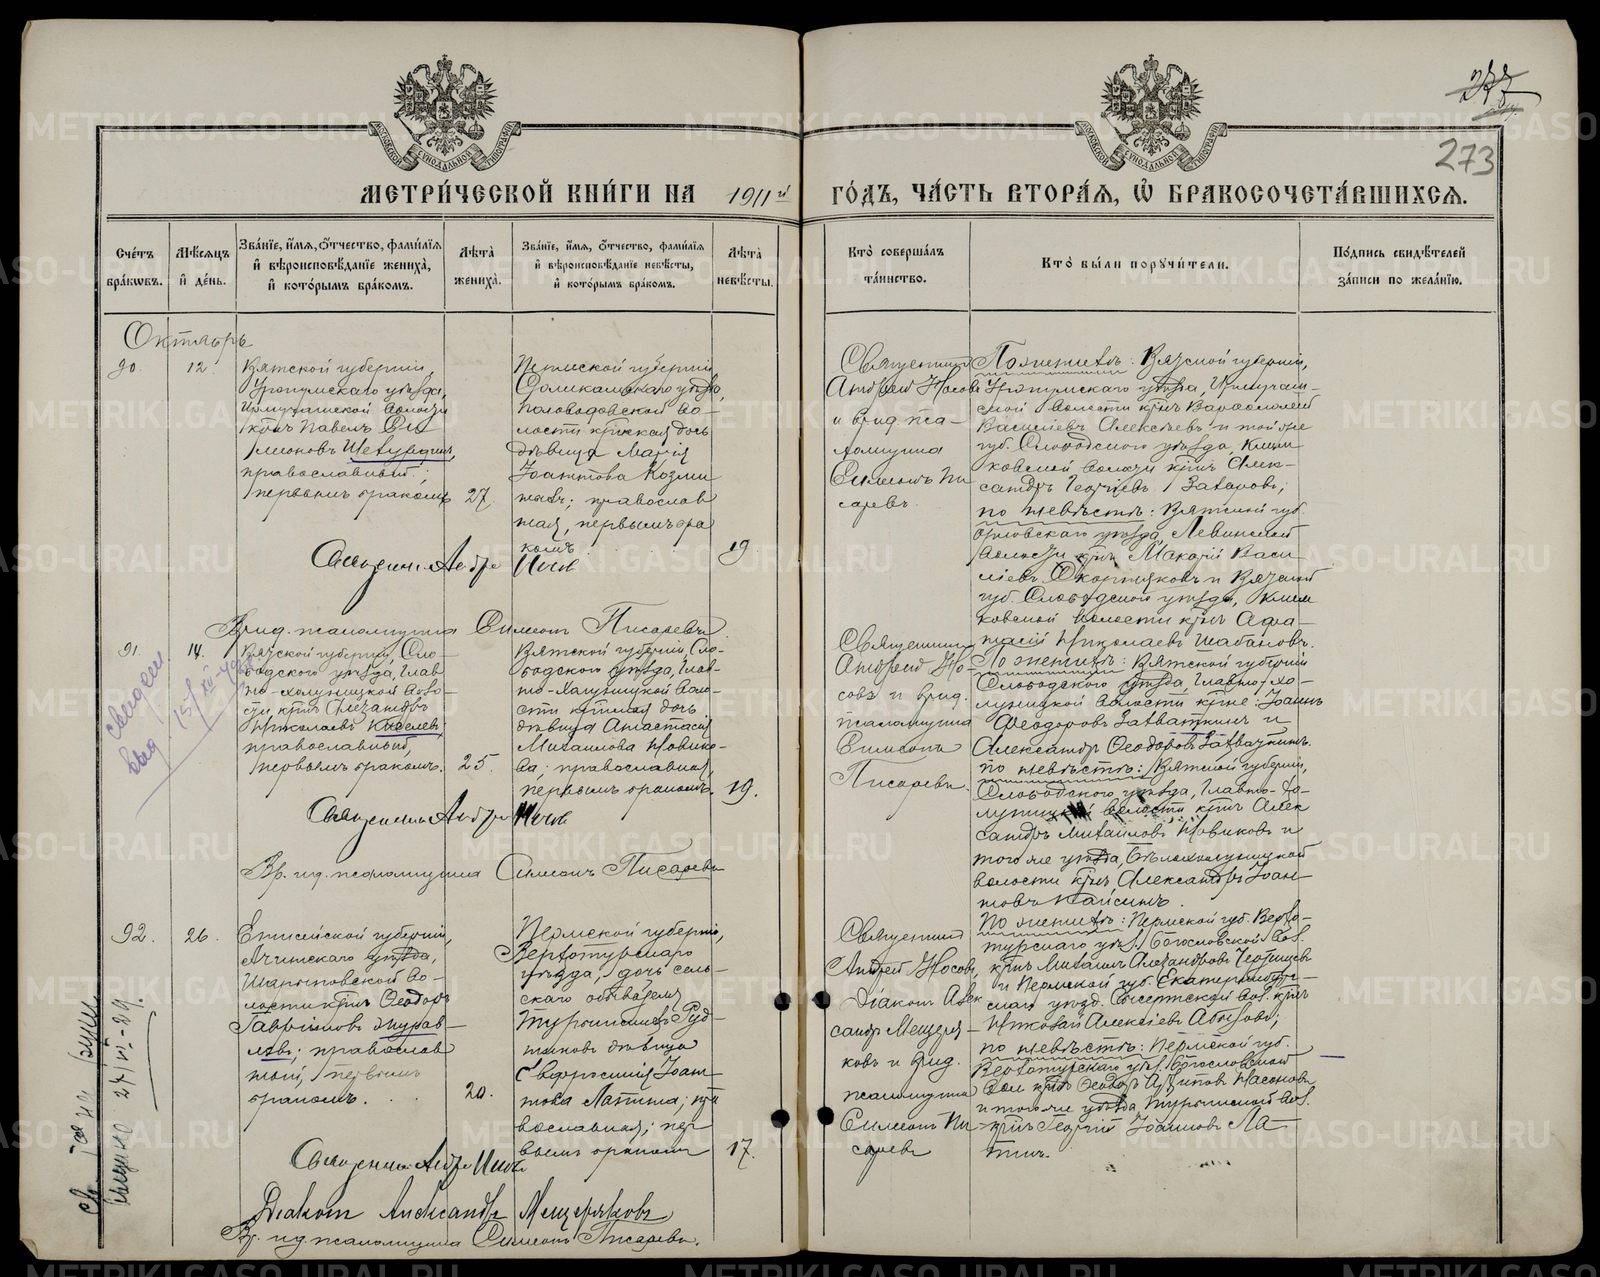 273
МЕТРИ́ЧЕСКОЙ КНИ́ГИ НА 1911й ГО́ДЪ, ЧА́СТЬ ВТОРА́Я, Ѡ҆ БРАКОСОЧЕТА́ВШИХСЯ.
Сче́тъ бра́кѡвъ.
Мѣ́сяцъ и҆ де́нь.
Зва́нїе, и҆́мя, ѻ҆́тчество, фами́лїя и҆ вѣроисповѣ́данїе жениха̀, и҆ кото́рымъ бра́комъ.
Лѣ́та жениха̀.
Зва́нїе, и҆́мя, ѻ҆́тчество, фами́лїя и҆ вѣроисповѣ́данїе невѣ́сты, и҆ кото́рымъ бра́комъ.
Лѣ́та невѣ́сты.
Кто̀ соверша́лъ та́инство.
Кто̀ бы́ли поручи́тели.
По́дпись свидѣ́телей за́писи по жела́нїю.
Октябрь
90.
12.
Вятской губерніи,
Уржумскаго уѣзда,
волости
кр‑нъ Павелъ Си
меоновъ
православный;
первымъ бракомъ
27.
Пермской губерніи
Соликамскаго уѣзда,
Половодовской во-
лости кр‑ская дочь
дѣвица Марія
Іоаннова Козми
ныхъ; православ
ная, первымъ бра
комъ
19
Священникъ
Андрей Носовъ
и врид. пса-
ломщика
Симеонъ Пи
саревъ
По женихѣ: Вятской губерніи,
Уржумскаго уѣзда,
ской волости кр‑нъ Варѳоломей
Васильевъ Алексѣевъ и той же
губ. Слободского уѣзда, Клим
ковской волости кр‑нъ Алек-
сандръ Георгіевъ Захаровъ;
по невѣстѣ: Вятской губ.
Орловскаго уѣзда, Левинской
волости кр‑нъ Макарій Васи-
льевъ и Вятской
губ. Слободского уѣзда, Клим
ковской волости кр‑нъ Аѳа-
насій Николаевъ Шабалинъ.
Священникъ Андрей Носовъ
Врид. псаломщика Симеонъ Писаревъ
91.
14.
Вятской губерніи, Сло-
бодского уѣзда, Глав
но-холуницкой воло-
сти кр‑нъ Александръ
Николаевъ Киселевъ;
православный,
первымъ бракомъ.
25.
Вятской губерніи, Сло-
бодского уѣзда, Глав-
но-Холуницкой воло-
сти кр‑ская дочь
дѣвица Анастасія
Михаилова Новико-
ва; православная,
первымъ бракомъ.
19.
Священникъ
Андрей Но-
совъ и врид.
псаломщика
Симеонъ
Писаревъ.
По женихѣ: Вятской губерніи
Слободского уѣзда, Главно-хо-
луницкой волости кр‑не: Іоаннъ
Ѳеодоровъ Захваткинъ и
Александръ Ѳеодоровъ Захваткинъ.
по невѣстѣ: Вятской губерніи,
Слободского уѣзда, Главно-хо-
луницкой волости кр‑нъ Алек
сандръ Михаиловъ Новиковъ и
того же уѣзда, Бѣлохолуницкой
волости кр‑нъ Александръ Іоан
новъ
Священникъ Андрей Носовъ
Вр. ид. псаломщика Симеонъ Писаревъ
92.
26.
Енисейской губерніи,
Ачинскаго уѣзда,
Шарыповской во-
лости кр‑нъ Ѳеодоръ
Гавріиловъ Журав-
левъ; православ
ный, первымъ
бракомъ.
20.
Пермской губерніи,
Верхотурскаго
уѣзда, дочь сель-
скаго обывателя
Турьинскихъ Руд-
никовъ дѣвица
Евфросинія Іоан
нова Лапина; пра
вославная; пер
вымъ бракомъ
17.
Священникъ
Андрей Носовъ,
Діаконъ Алек
сандръ Мещеря-
ковъ и врид.
псаломщика
Симеонъ Пи
саревъ
По женихѣ: Пермской губ. Верхо-
турскаго уѣз. Богословской вол.
кр‑нъ Михаилъ Александровъ
и Пермской губ. Екатеринбург-
скаго уѣзд. Сысертской вол. кр‑нъ
Николай Алексѣевъ
по невѣстѣ: Пермской губ.
Верхотурскаго уѣз. Богословской
вол. кр‑нъ Ѳеодоръ
и того же уѣзда Турьинской вол.
кр‑нъ Георгій Іоанновъ Ла-
пинъ.
Священникъ Андрей Носовъ
Діаконъ Александръ Мещеряковъ
Вр. ид. псаломщика Симеонъ Писаревъ.